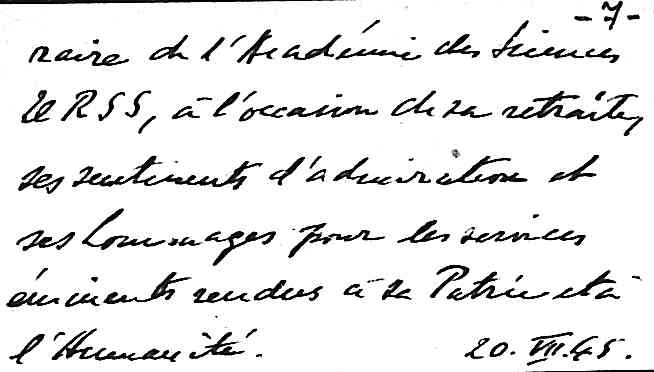 - 7 -
raire de l'Académie des Sciences
URSS, à l'occasion de sa retraite,
ses sentiments d'admiration et
ses hommages pour les services
éminents rendus à sa Patrie et à
l'Humanité. 20. VII. 45.